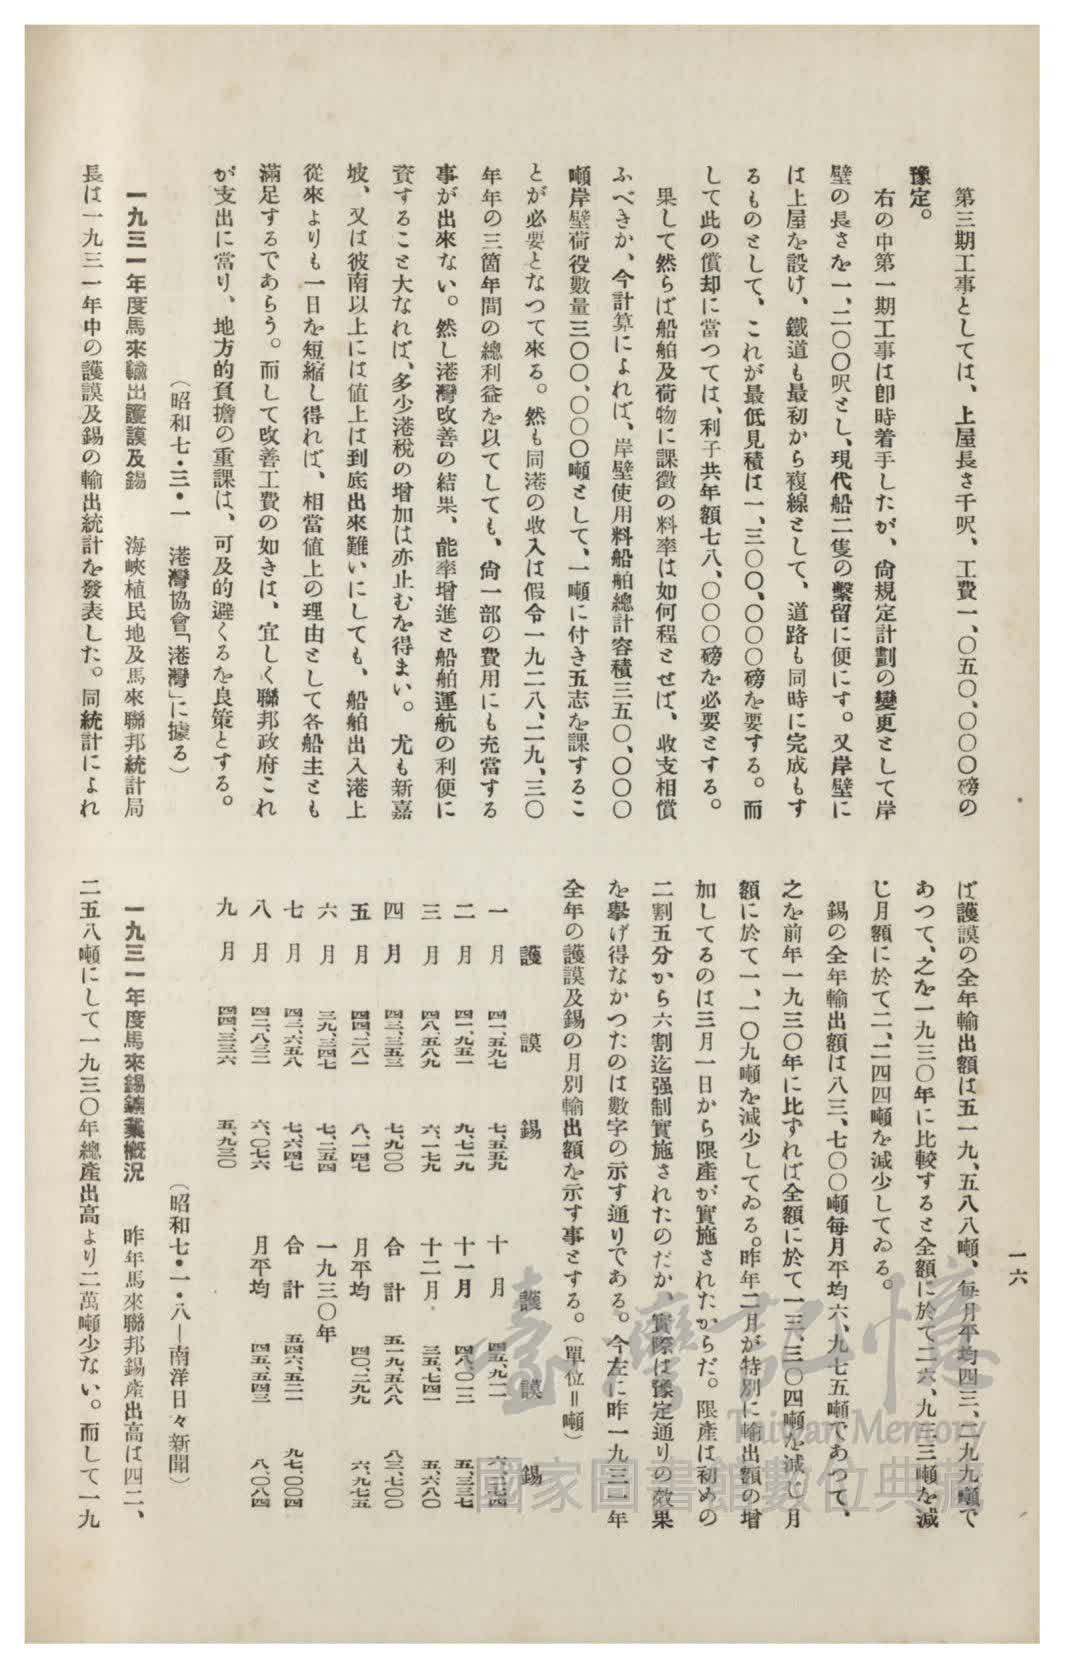 第三期工事としては、上屋長さ千呎、工費一、〇五〇、〇〇〇磅の
豫定。
右の中第一期工事は卽時着手したが、尙規定計劃の變更として岸
壁の長さを一、二〇〇呎とし、現代船二隻の繫留に便にす。又岸壁に
は上屋を設け、鐵道も最初から複線として、道路も同時に完成もす
るものとして、これが最低見積は一、三〇〇、〇〇〇磅を要する。而
して此の償却に當つては、利子共年額七八、〇〇〇磅を必要とする。
果して然らば船舶及荷物に課徵の料率は如何程とせば、收支相償
ふべきか、今計算によれば、岸壁使用料船舶總計容積三五〇、〇〇〇
噸岸壁荷役數量三〇〇、〇〇〇噸として、一噸に付き五志を課するこ
とが必要となつて來る。然も同港の收入は假令一九二八、二九、三〇
年年の三箇年間の總利益を以てしても、尙一部の費用にも充當する
事が出來ない。然し港灣改善の結果、能率增進と船舶運航の利便に
資すること大なれば、多少港稅の增加は亦止むを得まい。尤も新嘉
坡、又は彼南以上には値上は到底出來難いにしても、船舶出入港上
從來よりも一日を短縮し得れば、相當値上の理由として各船主とも
滿足するであらう。而して改善工費の如きは、宜しく聯邦政府これ
が支出に當り、地方的負擔の重課は、可及的避くるを良策とする。
（昭和七・三・一　港灣協會「港灣」に據る）
一九三一年度馬來輸出護謨及錫　海峽植民地及馬來聯邦統計局
長は一九三一年中の護謨及錫の輸出統計を發表した。同統計によれ
ば護謨の全年輸出額は五一九、五八八噸、每月平均四三、二九九噸で
あつて、之を一九三〇年に比較すると全額に於て二六、九三三噸を減
じ月額に於て二、二四四噸を減少してゐる。
錫の全年輸出額は八三、七〇〇噸每月平均六、九七五噸であつて、
之を前年一九三〇年に比ずれば全額に於て一三、三〇四噸を減じ月
額に於て一、一〇九噸を減少してゐる。昨年二月が特別に輸出額の增
加してるのは三月一日から限產が實施されたからだ。限產は初めの
二割五分から六割迄强制實施されたのだが、實際は豫定通りの效果
を擧げ得なかつたのは數字の示す通りである。今左に昨一九三一年
全年の護謨及錫の月別輸出額を示す事とする。（單位＝噸）
護謨　錫　護謨　錫
一月　四一、五九七　七、五五九　十月　四五、九一二　六、二七四
二月　四一、九五一　九、七一九　十一月　四八、〇一三　五、三三七
三月　四八、五八九　六、一七九　十二月　三五、七四一　五、六八〇
四月　四三、三五三　七、九〇〇　合計　五一九、五八八　八三、七〇〇
五月　四四、二八一　八、一四七　月平均　四〇、二九九　六、九七五
六月　三九、三四七　七、二五四　一九三〇年
七月　四三、六五八　七、六四七　合計　五四六、五二一　九七、〇〇四
八月　四二、八三二　六、〇七六　月平均　四五、五四三　八、〇八四
九月　四四、三三六　五、九三〇
（昭和七・一・八—南洋日々新聞）
一九三一年度馬來錫鑛業槪況　昨年馬來聯邦錫產出高は四二、
二五八噸にして一九三〇年總產出高より二萬噸少ない。而して一九
一六
臺灣記憶
Taiwan Memory
國家圖書館數位典藏